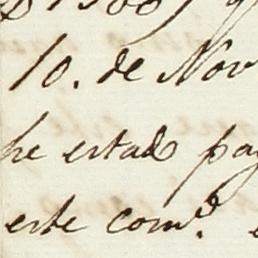 10. de Nov
he estado pag
este com.º